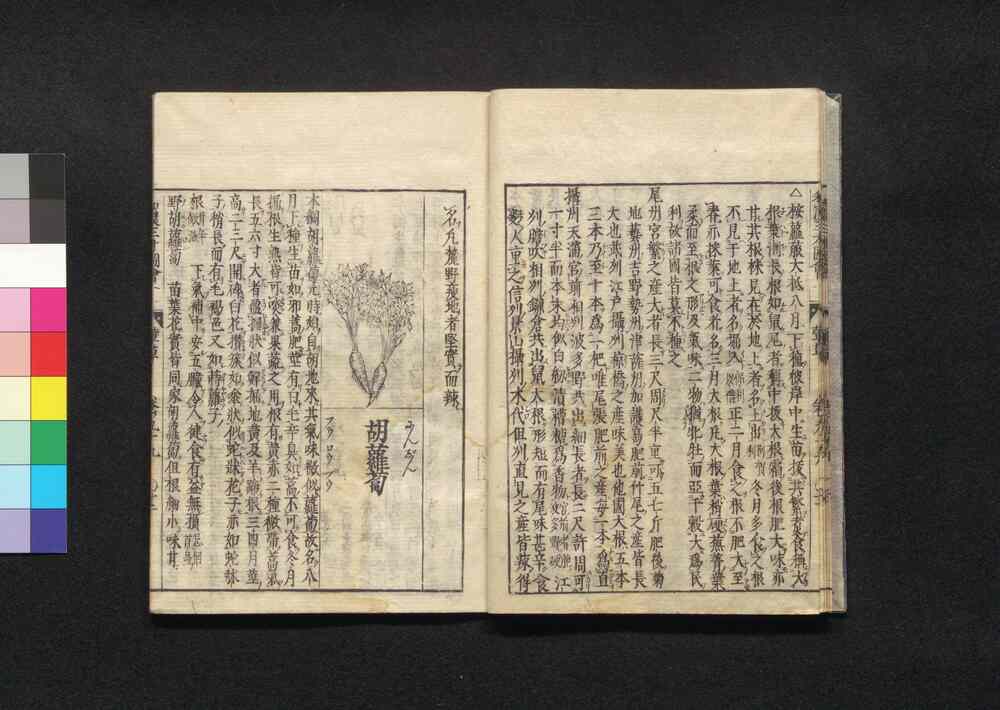 △按蘿蔔大抵八月下種彼岸中生苗採其繁者食稱大
根葉漸長根如鼠尾者稱中抜大根霜後根肥大味亦
甘其根株見在於地上者名上出 冬月多食之根
不見于地上者名福入 正二月食之根不肥大至
春亦採葉可食花名三月大根凡大根葉梢硬蕪菁葉
柔而至根之形及氣味二物猶牝牡而亞于穀大爲民
利故諸國皆莫不種之
尾州宮繁之産大者長三尺周尺半重可五七斤肥後菊
地藝州吉野勢州津薩州加護島肥前竹尾之産皆長
大也 江戸攝州椋橋之産味美也他國大根五本
三本乃至十本爲一把唯尾張肥前之産毎一本爲直
攝州天滿宮前相州波多野共出細大者長二尺許周可
一寸半而本末均似白 漬糟糠爲香物 江
州膽吹相州鎌倉共出鼠大根形短而有尾味甚辛食
人重之信州景山攝州木代但州直見之産皆辣得
名凡麓野瘦地者堅實而辣
にんじん
胡蘿蔔
本綱胡蘿蔔元時始自胡地來其氣味微似蘿蔔故名八
月下種生苗如邪蒿肥莖有白毛辛臭如蒿不可食冬月
掘根生熟皆可啖兼果蔬之用根有黃赤二種微帶蒿氣
長五六寸大者盈握狀似鮮掘地黃及羊蹄根三四月莖
高二三尺開碎白花攢簇如傘狀似蛇牀花子亦如蛇牀
子稍長而有毛褐色又如蒔蘿子
根 下氣補中安五臟令人健食有益無損
野胡蘿蔔 苗葉花實皆同家胡蘿蔔但根細小味甘